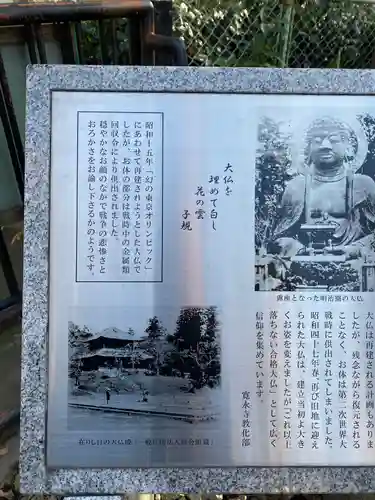 大仏を
埋めて白し
花の雲
子規
露座となった明治期の大仏
大仏は再建される計画もありま
したが、残念ながら復元される
ことなく、お体は第二次世界大
戦時に供出されてしまいました。
昭和四十七年春、再び旧地に迎え
られた大仏は、建立当初より大き
くお姿を変えましたが「これ以上
落ちない合格大仏」として広く
信仰を集めています。
寛永寺教化部
昭和十五年「幻の東京オリンピック」
にあわせて再建されようとした大仏で
したが、お体の部分は戦時中の金属類
回収令により供出されました。
穏やかなお顔のなかで戦争の悲惨さと
おろかさをお諭し下さるかのようです。
在りし日の大仏殿